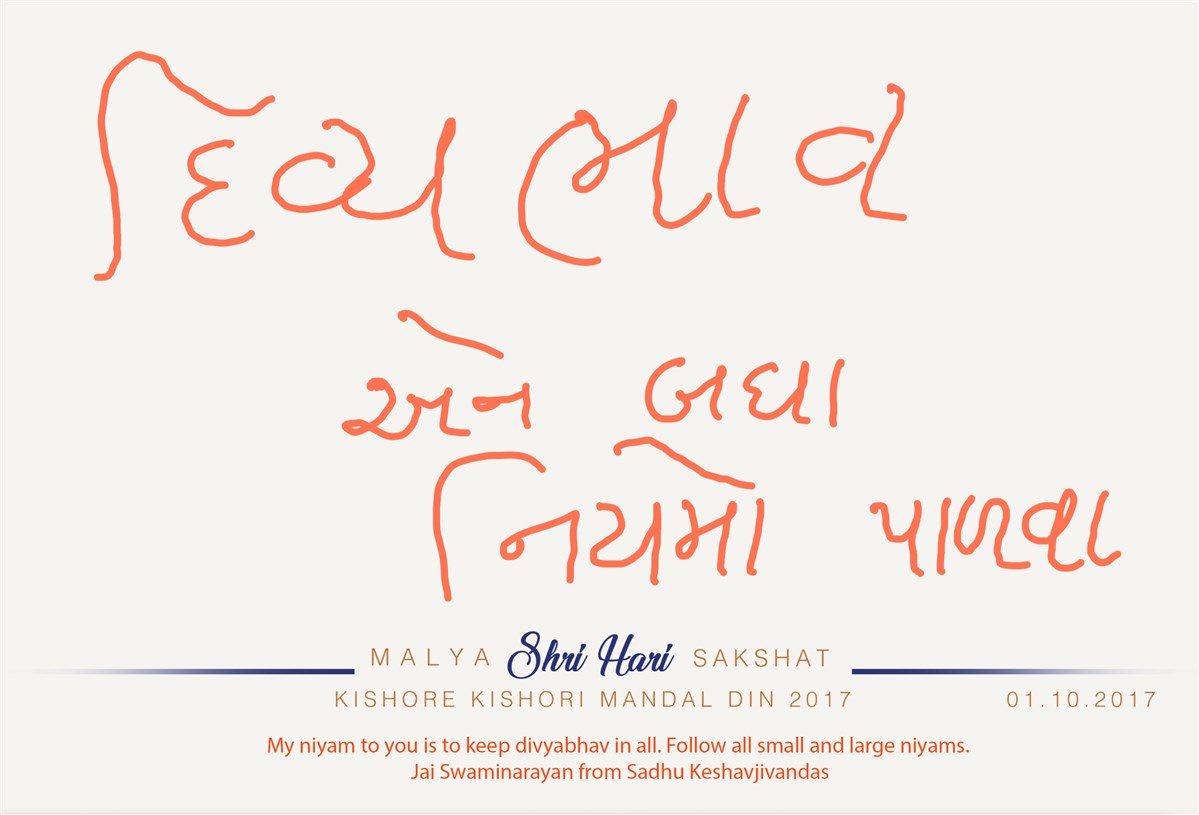 દિવ્યભાવ
અને બધા
નિયમો પાળવા
MALYA Shri Hari SAKSHAT
KISHORE KISHORI MANDAL DIN 2017 01.10.2017
My niyam to you is to keep divyabhav in all. Follow all small and large niyams.
Jai Swaminarayan from Sadhu Keshavjivandas